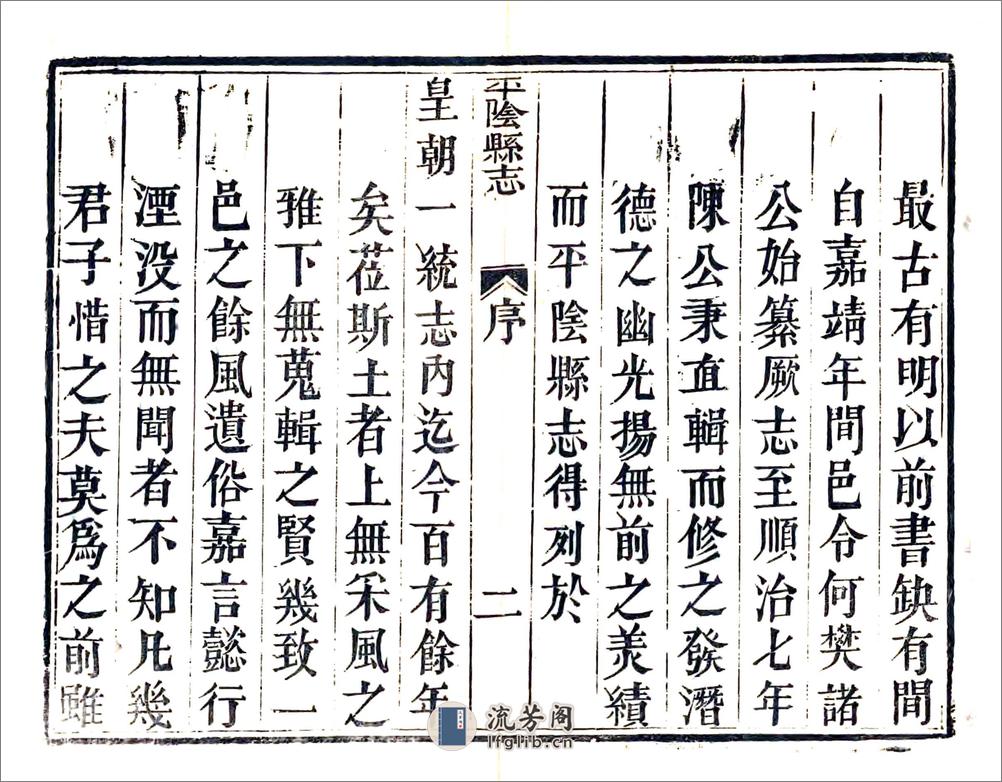 最古有明以前書缺有間
自嘉靖年間邑令何樊諸
公始纂厥志至順治七年
陳公秉直輯而修之發潛
德之幽光揚無前之羙績
而平陰縣志得列於
平陰縣志 序 二
皇朝一統志內迄今百有餘年
矣莅斯土者上無采風之
雅下無蒐輯之賢幾致一
邑之餘風遺俗嘉言懿行
湮没而無聞者不知凡幾
君子惜之夫莫爲之前雖
流芳阁
lfglib.cn